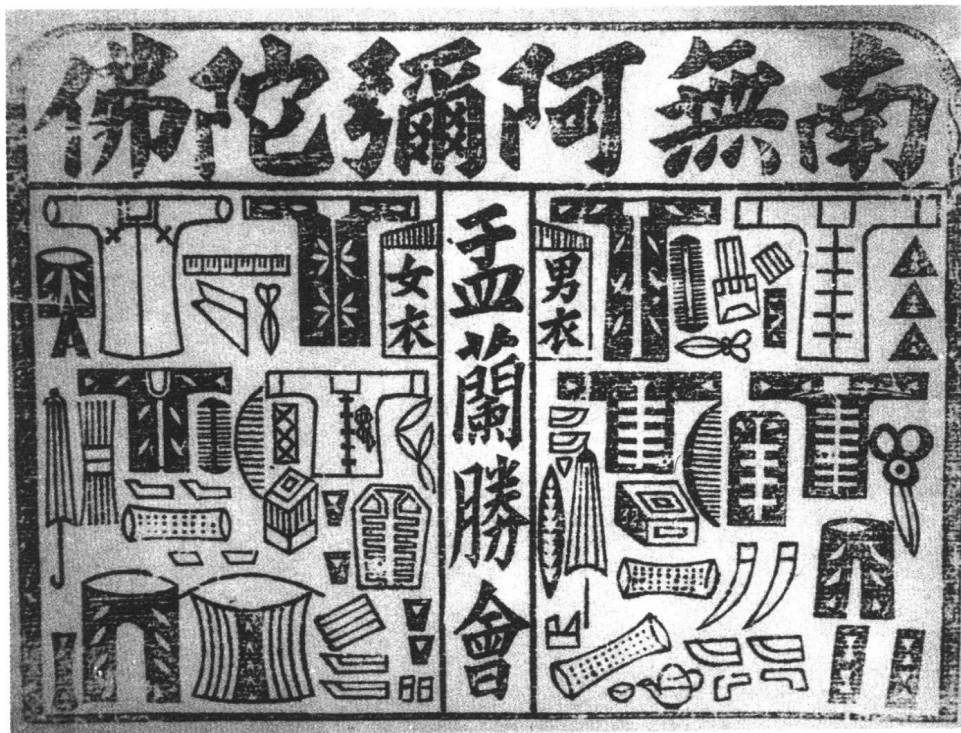 南無阿彌陀佛
男衣
盂蘭勝會
女衣